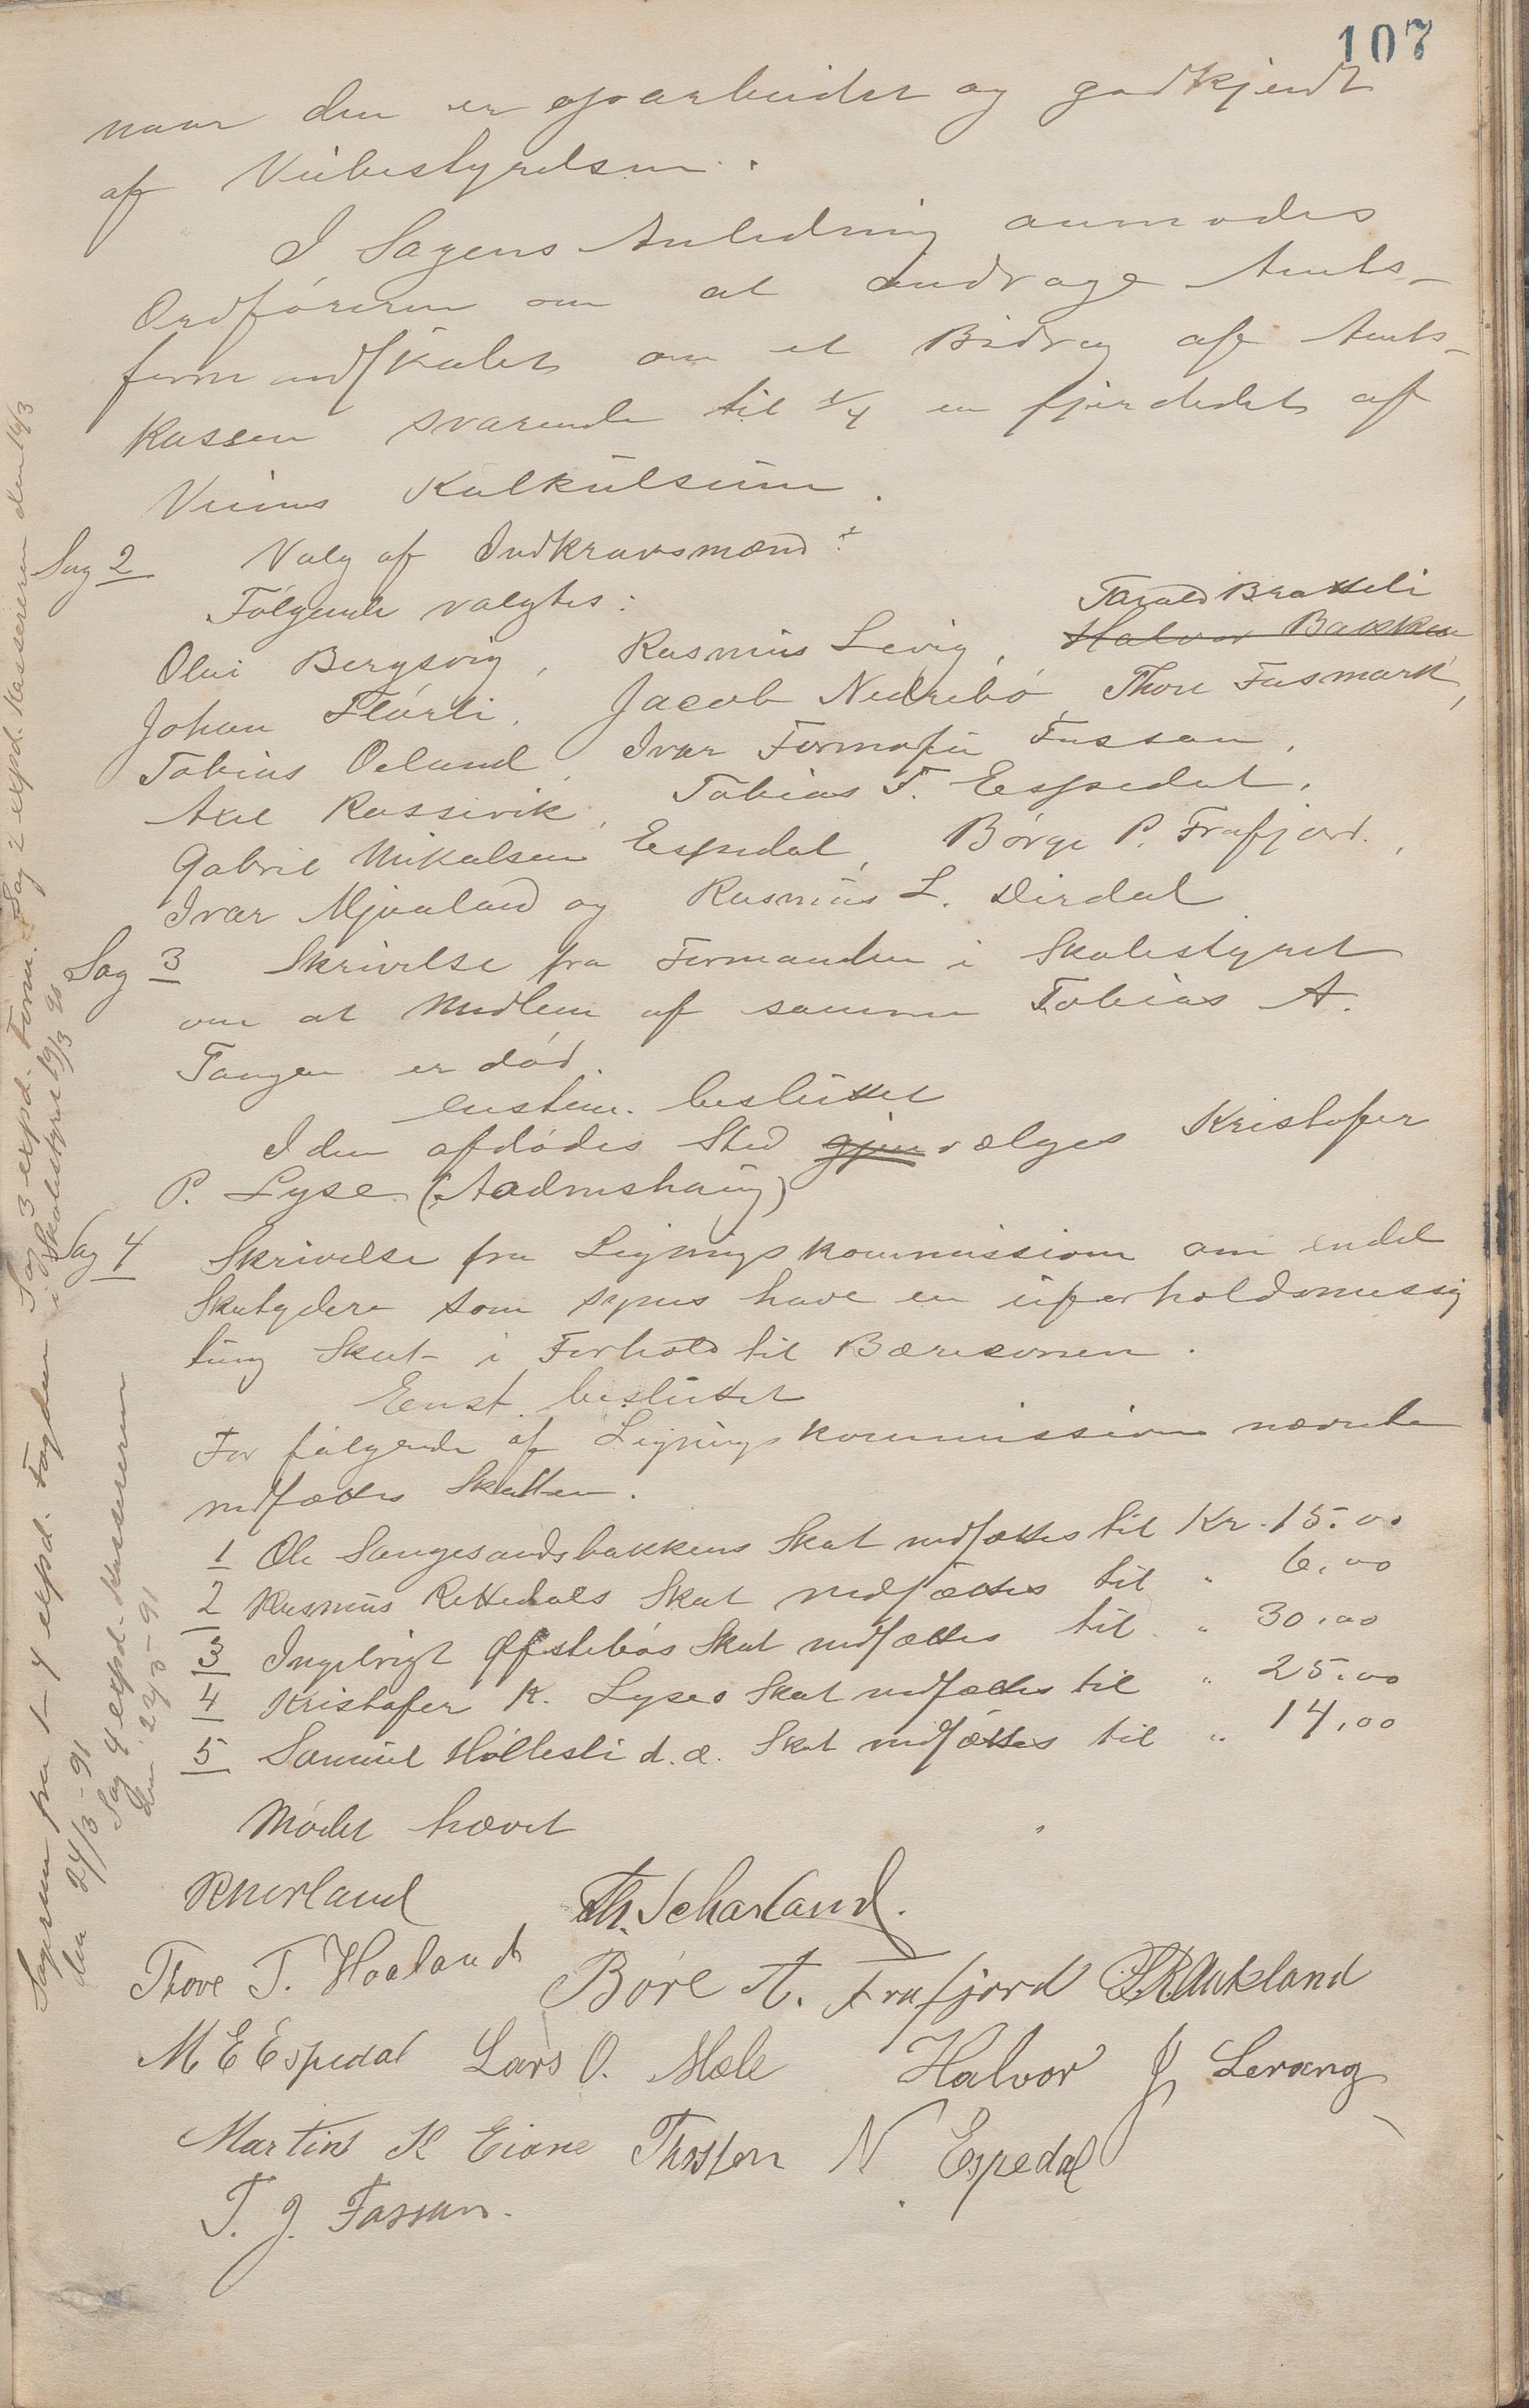 107
naar den er oparbeidet og godkjendt
af Veibestyrelsen.
I Sagens Anledning anmodes
Ordføreren om at andrage Amts-
formandskabet om et Bidrag af Amts-
kassen svarende til 1/4 en fjerdedel af
Veiens Kalkulsum.
Sag 2 Valg af Indkravsmænd:
Følgende valgtes:
Tarald Bratteli
Olai Bergsvig, Rasmus Levig, Halvor Bakken
Johan Flörli, Jacob Nedrebö, Thore Fusmark,
Tobias Oelund, Ivar Fossan,
Axel Rossevik, Tobias T. Espedal,
Gabriel Mikalsen Espedal, Börge P. Frafjord,
Ivar Mjaaland og Rasmus L. Dirdal
Sag 3 Skrivelse fra Formanden i Skolestyret
om at Medlem af samme Tobias A.
Fangen er död.
enstem. besluttet
I den afdödes Sted gjen vælges Kristofer
P. Lyse (Aadneshaug)
Sag 4 Skrivelse fra Ligningskommissionen om endel
Skatydere som synes have en uforholdsmessig
tung Skat i Forhold til Bæreevnen.
Enst. besluttet
For fölgende af Ligningskommissionen nævnte
nedsættes Skatten.
1 Ole Sangesandsbakkens Skat nedsættes til Kr. 15.00
2 Rasmus Rettedals Skat nedsættes til " 6.00
3 Ingebrigt Öfstebös Skat nedsættes til " 30.00
4 Kristofer K. Lyses Skat nedsættes til " 25.00
5 Samuel Höllesli d.æ. Skat nedsættes til " 14,00
Mödet hævet
Th. Scharland.
Thove T. Haaland Böre A. Frafjord
M E Espedal Lars O. Mæle Halvor J Lerang
Martin K Eiane Thosten N Espedal
T. J. Fossan.
Sag 3 expd. Form. i Skolestyret 19/3 90
Sag 2 expd. Kassereren den 16/3
Sagerne fra 1-4 expd. Fogden
den 24/3-91
Sag 4 expd. Kassereren
den 27/5-91